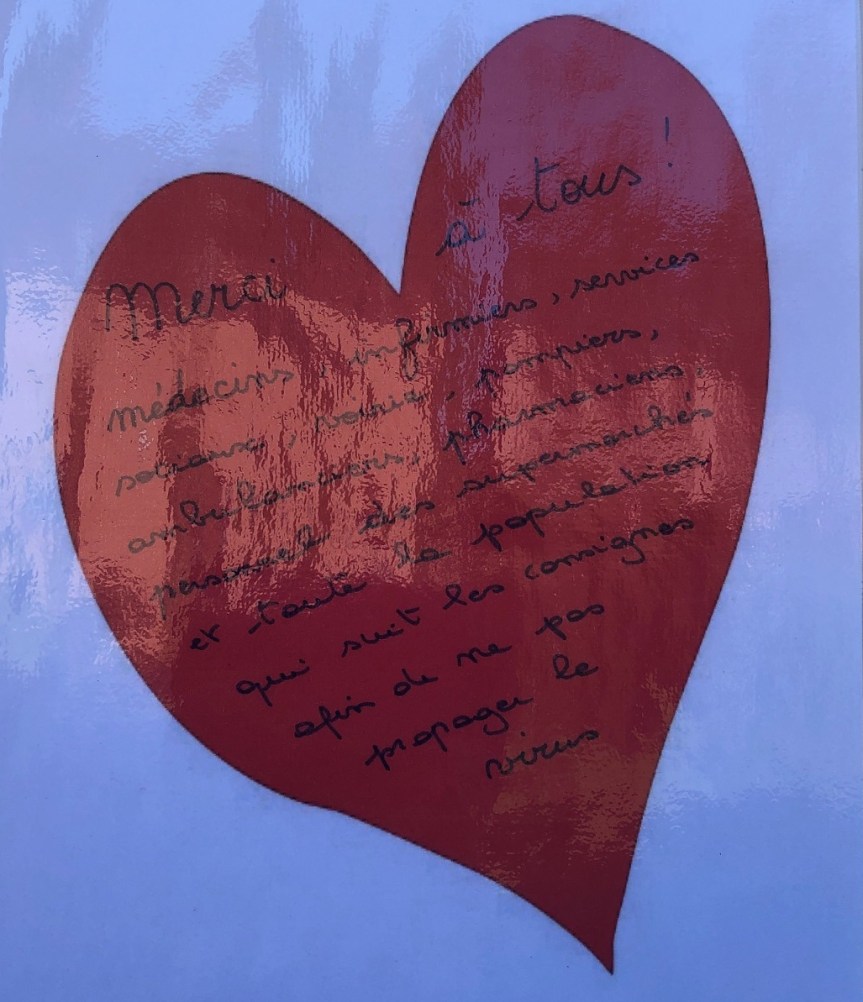 Merci à tous !
médecins, infirmiers, services
sociaux, voirie, pompiers,
ambulanciers, pharmaciens,
personnel des supermarchés
et toute la population
qui suit les consignes
afin de ne pas
propager le
virus